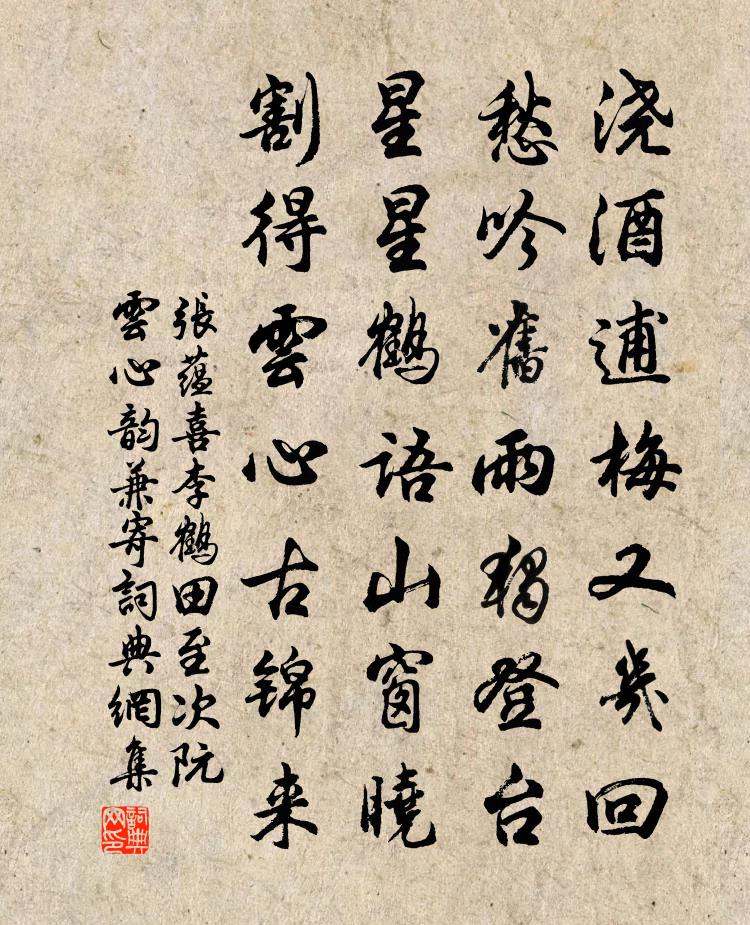 浇酒逋梅又几回
愁吟旧雨独登台
星星鹤语山窗晓
割得雲心古锦来
張蕴喜李鶴田至次阮
雲心韵兼寄詞典網集
詞典网印